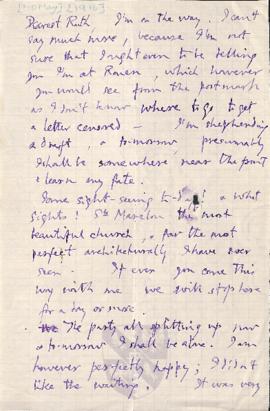 [10 May] [1916]
Dearest Ruth I'm on the way. I can't
say much more, because I'm not
sure that I ought even to be telling
you I'm at Rouen, which however
you would see from the postmark
as I don't know where to go to get
a letter censored — I'm shepherding
a draft, & to-morrow, presumably
I shall be somewhere near the front
& learn my fate.
Some sight-seeing to-day! & what
sights! St Maclou the most
beautiful church, & far the most
perfect architecturally I have ever
seen. If ever you come this
way with me we will stop here
for a day or more.
The party all splitting up now
& to-morrow I shall be alone. I am
however perfectly happy; I didn't
like the waiting. It was very